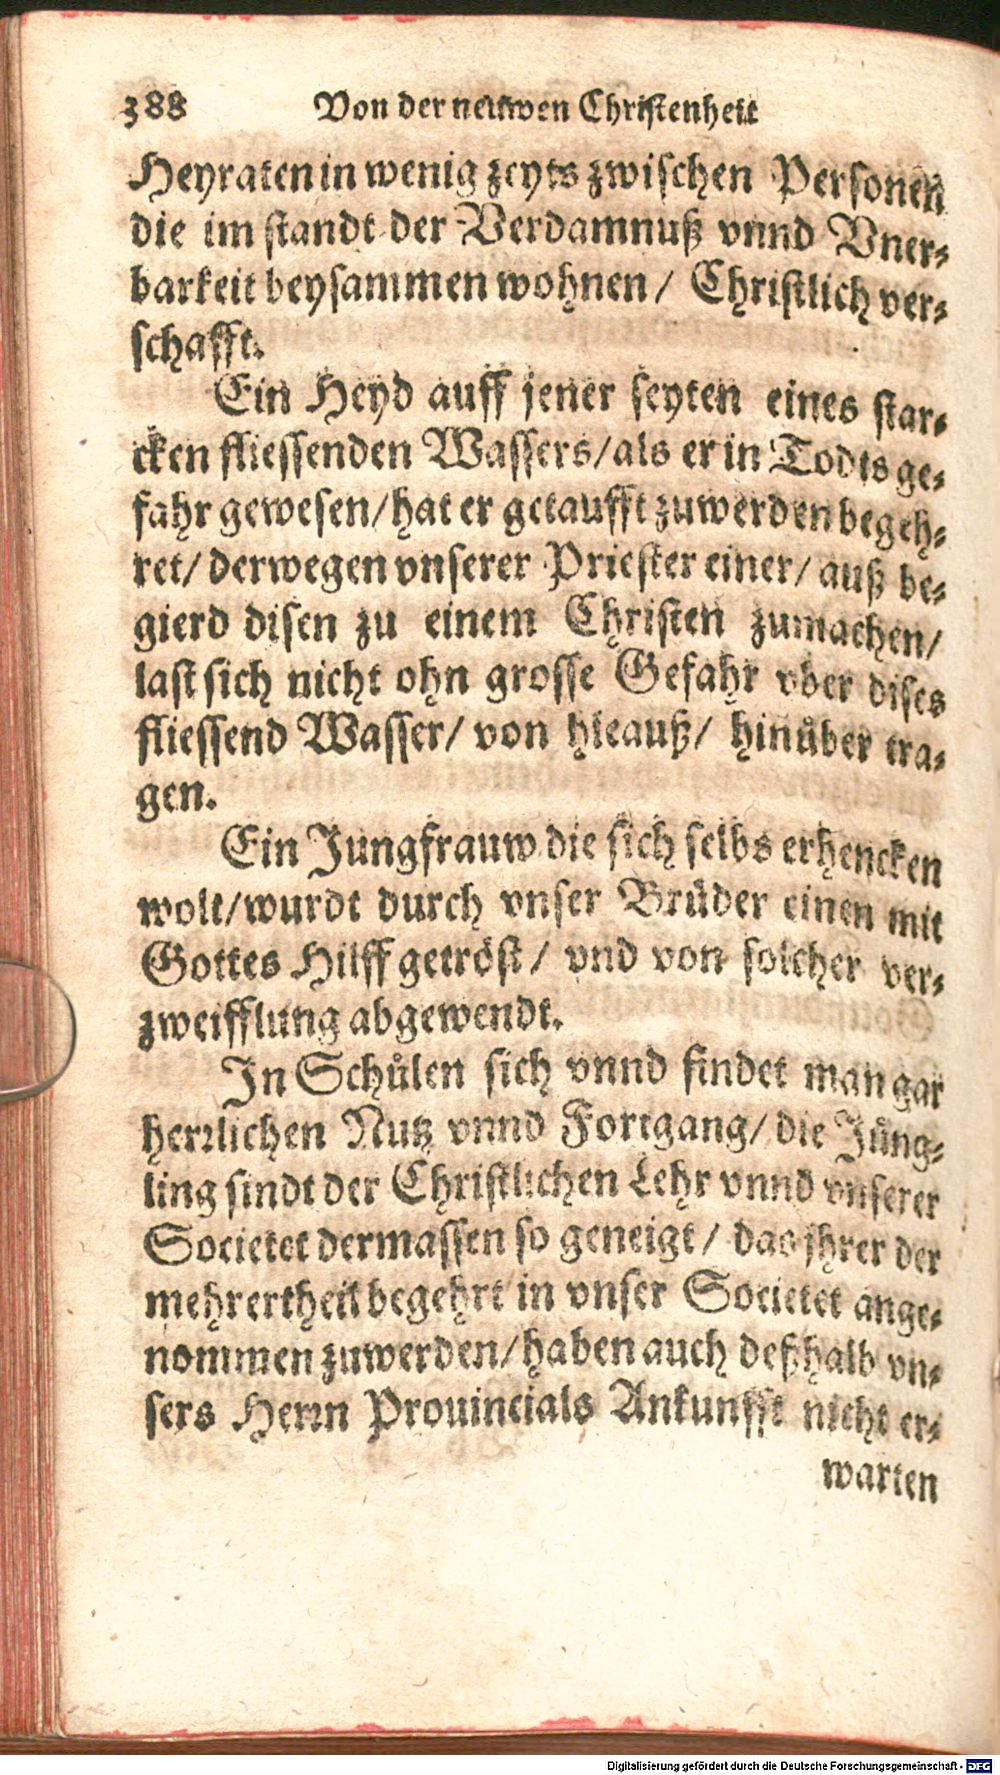 388 Von der neuwen Christenheit
Heyraten in wenig zeyts zwischen Personen
die im standt der Verdamnuß vnnd Vner-
barkeit beysammen wohnen / Christlich ver-
schafft.
Ein Heyd auff jener seyten eines star-
cken fliessenden Wassers / als er in Todts ge-
fahr gewesen / hat er getaufft zuwerden begeh-
ret / derwegen vnserer Priester einer / auß be-
gierd disen zu einem Christen zumachen /
last sich nicht ohn grosse Gefahr vber dises
fliessend Wasser / von hieauß / hinüber tra-
gen.
Ein Jungfrauw die sich selbs erhencken
wolt / wurdt durch vnser Brüder einen mit
Gottes Hilff getröst / vnd von solcher ver-
zweifflung abgewendt.
In Schülen sich vnnd findet man gar
herrlichen Nutz vnnd Fortgang / die Jüng-
ling sindt der Christlichen Lehr vnnd vnserer
Societet dermassen so geneigt / das jhrer der
mehrertheil begehrt in vnser Societet ange-
nommen zuwerden / haben auch deßhalb vn-
sers Herrn Prouincials Ankunfft nicht er-
warten
Digitalisierung gefördert durch die Deutsche Forschungsgemeinschaft - DFG